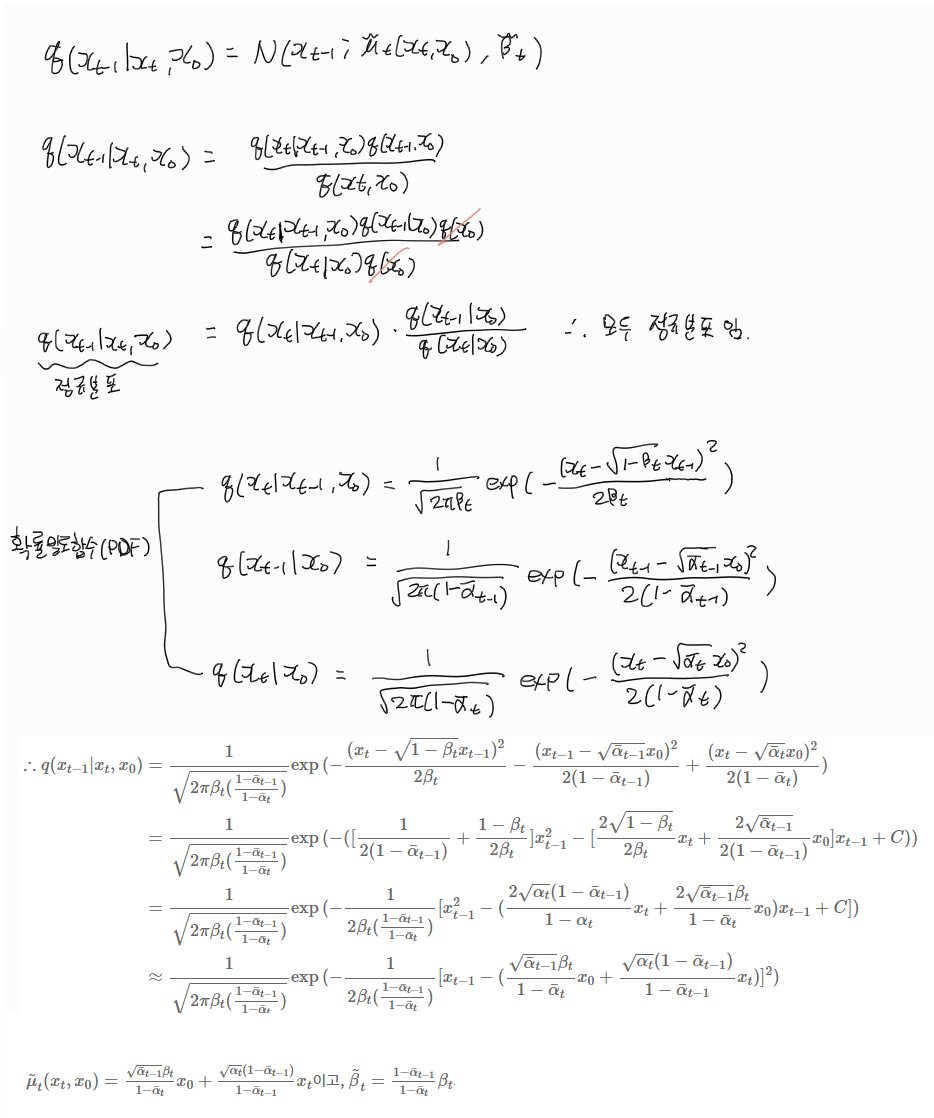 q(x_{t-1}|x_t, x_0) = N(x_{t-1}; μ̃_t(x_t, x_0), β̃_t)
q(x_{t-1}|x_t, x_0) = \frac{q(x_t|x_{t-1}, x_0)q(x_{t-1}, x_0)}{q(x_t, x_0)}
= \frac{q(x_t|x_{t-1}, x_0)q(x_{t-1}|x_0)q(x_0)}{q(x_t|x_0)q(x_0)}
q(x_{t-1}|x_t, x_0) = q(x_t|x_{t-1}, x_0) · \frac{q(x_{t-1}|x_0)}{q(x_t|x_0)} ∴ 모두 정규분포임.
정규분포
q(x_t|x_{t-1}, x_0) = \frac{1}{\sqrt{2πβ_t}} exp(-\frac{(x_t - \sqrt{1-β_t}x_{t-1})^2}{2β_t})
확률밀도함수(PDF)
q(x_{t-1}|x_0) = \frac{1}{\sqrt{2π(1-ᾱ_{t-1})}} exp(-\frac{(x_{t-1} - \sqrt{ᾱ_{t-1}}x_0)^2}{2(1-ᾱ_{t-1})})
q(x_t|x_0) = \frac{1}{\sqrt{2π(1-ᾱ_t)}} exp(-\frac{(x_t - \sqrt{ᾱ_t}x_0)^2}{2(1-ᾱ_t)})
∴ q(x_{t-1}|x_t, x_0) = \frac{1}{\sqrt{2πβ_t(\frac{1-ᾱ_{t-1}}{1-ᾱ_t})}} exp(-\frac{(x_t - \sqrt{1-β_t}x_{t-1})^2}{2β_t} - \frac{(x_{t-1} - \sqrt{ᾱ_{t-1}}x_0)^2}{2(1-ᾱ_{t-1})} + \frac{(x_t - \sqrt{ᾱ_t}x_0)^2}{2(1-ᾱ_t)})
= \frac{1}{\sqrt{2πβ_t(\frac{1-ᾱ_{t-1}}{1-ᾱ_t})}} exp(-([\frac{1}{2(1-ᾱ_{t-1})} + \frac{1-β_t}{2β_t}]x_{t-1}^2 - [\frac{2\sqrt{1-β_t}}{2β_t}x_t + \frac{2\sqrt{ᾱ_{t-1}}}{2(1-ᾱ_{t-1})}x_0]x_{t-1} + C))
= \frac{1}{\sqrt{2πβ_t(\frac{1-ᾱ_{t-1}}{1-ᾱ_t})}} exp(-\frac{1}{2β_t(\frac{1-ᾱ_{t-1}}{1-ᾱ_t})}[x_{t-1}^2 - (\frac{2\sqrt{α_t}(1-ᾱ_{t-1})}{1-α_t}x_t + \frac{2\sqrt{ᾱ_{t-1}}β_t}{1-ᾱ_t}x_0)x_{t-1} + C])
≈ \frac{1}{\sqrt{2πβ_t(\frac{1-ᾱ_{t-1}}{1-ᾱ_t})}} exp(-\frac{1}{2β_t(\frac{1-ᾱ_{t-1}}{1-ᾱ_t})}[x_{t-1} - (\frac{\sqrt{ᾱ_{t-1}}β_t}{1-ᾱ_t}x_0 + \frac{\sqrt{α_t}(1-ᾱ_{t-1})}{1-ᾱ_{t-1}}x_t)]^2)
μ̃_t(x_t, x_0) = \frac{\sqrt{ᾱ_{t-1}}β_t}{1-ᾱ_t}x_0 + \frac{\sqrt{α_t}(1-ᾱ_{t-1})}{1-ᾱ_{t-1}}x_t이고, β̃_t = \frac{1-ᾱ_{t-1}}{1-ᾱ_t}β_t